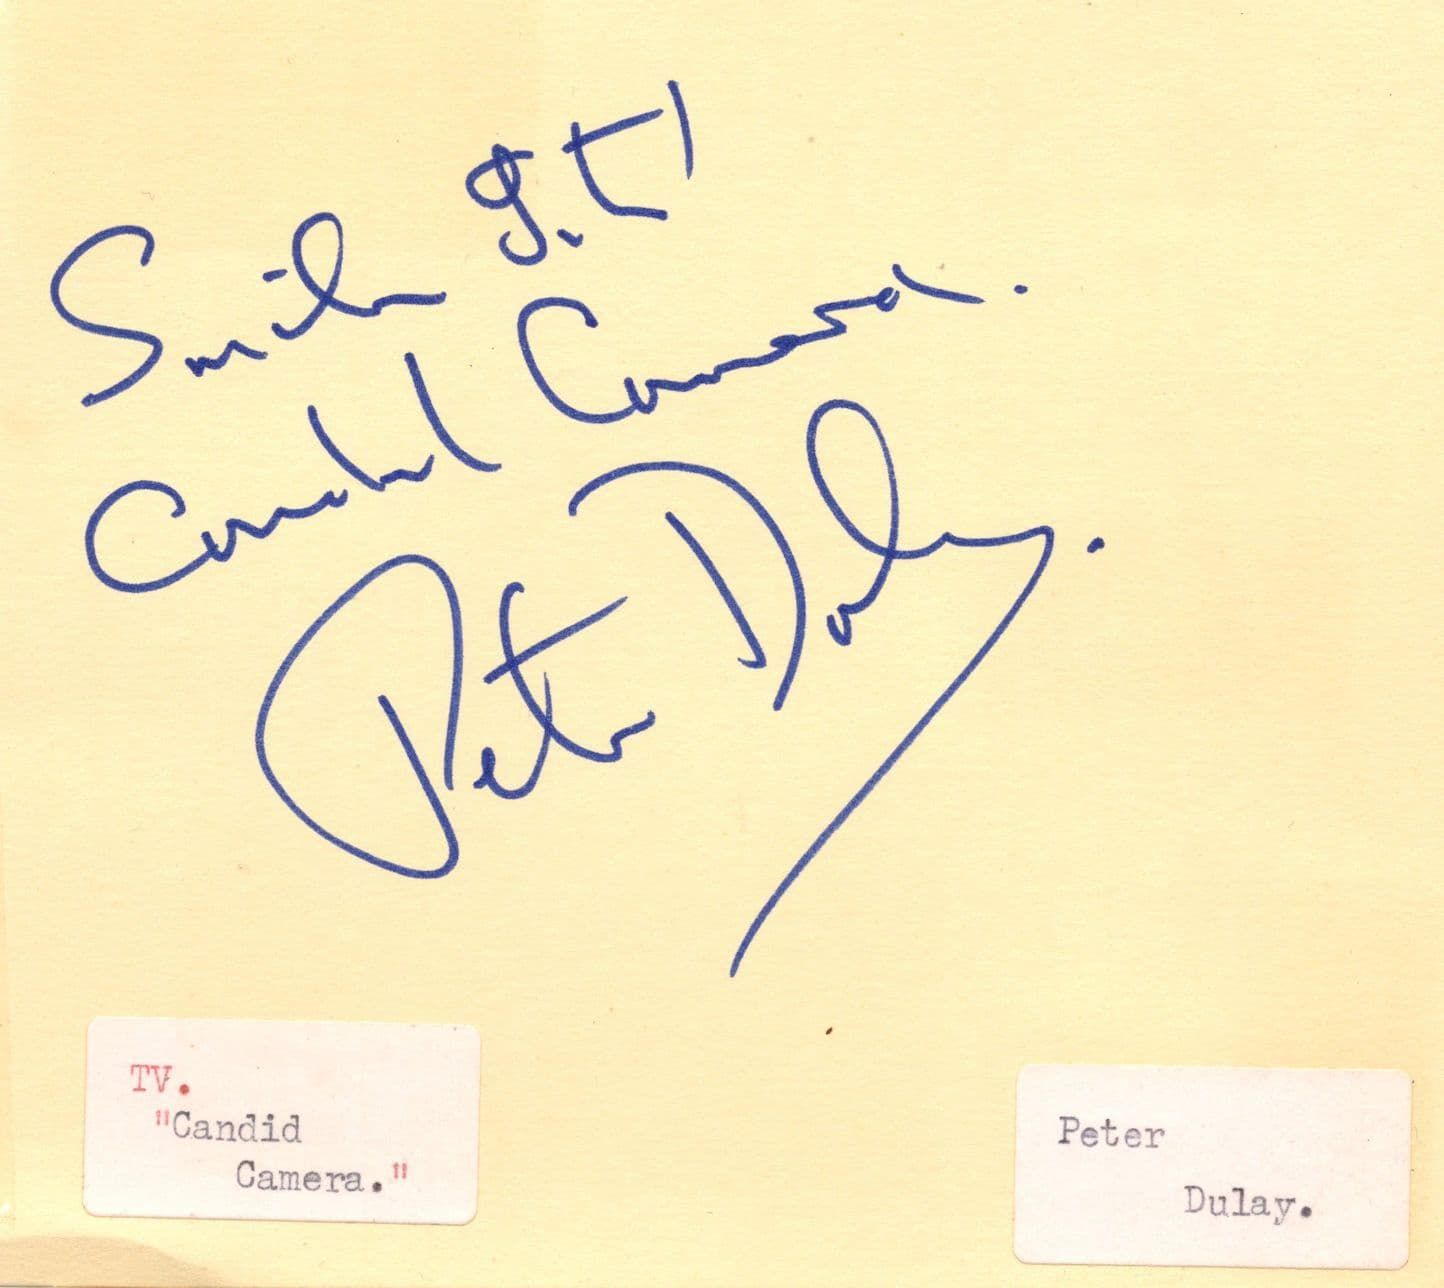 Smile
Candid Camera.
Peter Dulay.
TV.
"Candid
Camera."
Peter
Dulay.